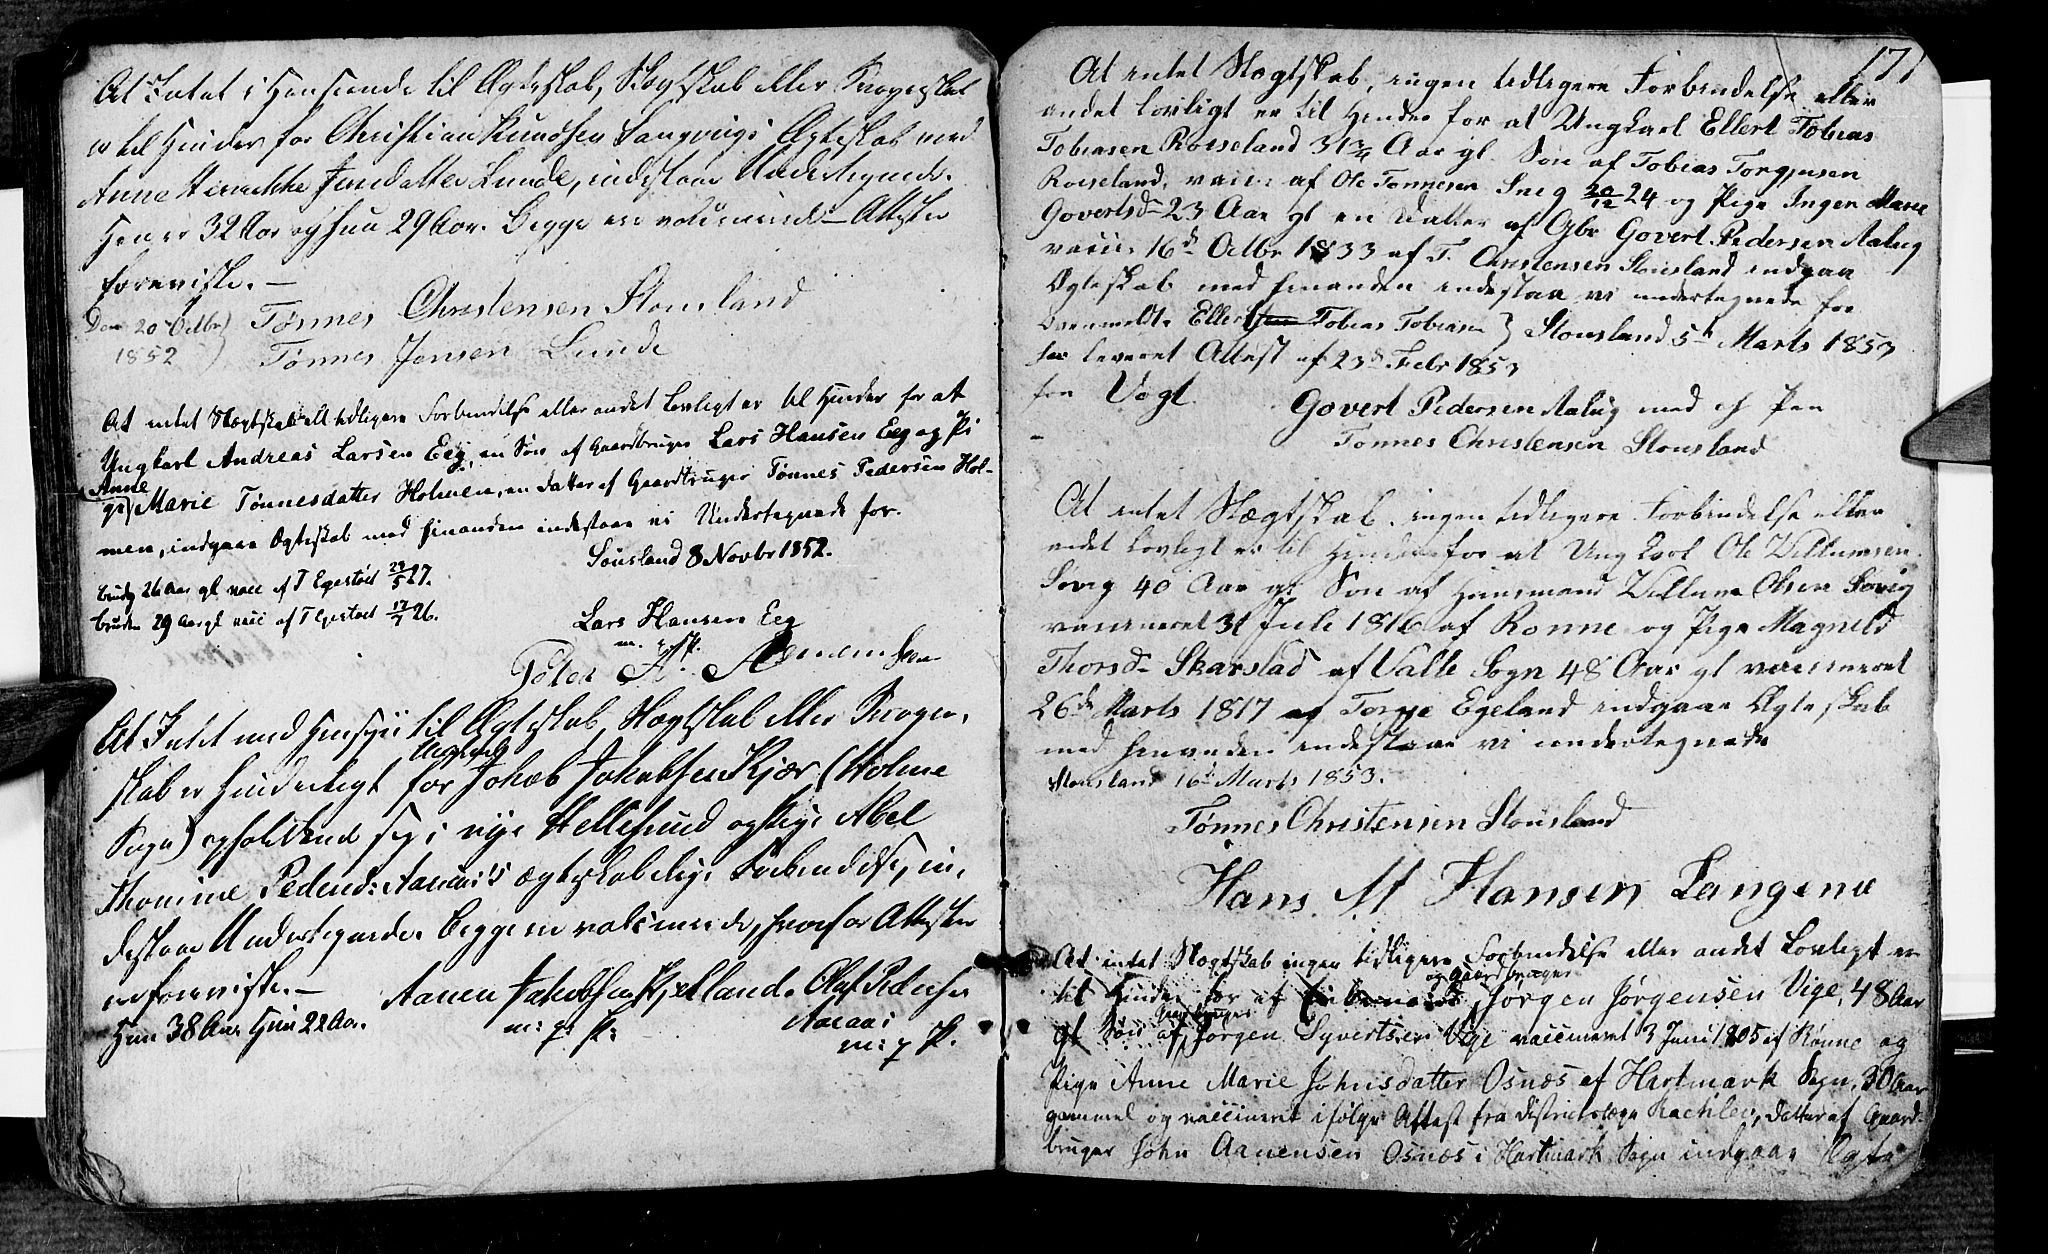 At Intet i Henseende til Ægteskab, Slægtskab eller Svogerskab
er til Hinder for Christian Knudsen Langvigs Ægteskab med
Anne Henrikke Jensdatter Lunde, indestaae Undertegnede.
Han er 32 Aar og hun 29 Aar. Begge ere vaccinerede Attester
foreviste. —
Den 20 Octbr
1852
Tønnes Christensen Stousland
Tønnes Jensen Lunde
At intet Slægtskab ell tidligere Forbindelse eller andet Lovligt er til Hinder for at
Ungkarl Andreas Larsen Eeg, en Søn af Gaardbruger Lars Hansen Eeg og Pi
Anne
ge Marie Tønnesdatter Holmen, en Datter af Gaardbruger Tønnes Pedersen Hol-
men, indgaae Ægteskab med hinanden indestaae vi Undertegnede for.
Sousland 8 Novbr 1852.
Brudg 26 Aar gl vacc af T Egestød 29/5 27.
bruden 29 Aar gl vacc af T Egestød 17/7 26.
Lars Hansen Eeg
m. p. P.
Peder A.
At Intet med Hensyn til Ægteskab, Slægtskab eller Svoger-
skab er hinderligt for Ungkarl Jakob Jakobsen Kjær (Holme
Sogn) opholdende sig i nye Hellesund og Pige Abel
Thomine Pedersd: Aaraas's ægteskabelige Forbindelse, in-
destaae Undertegnede. Begge ere vaccinerede, hvorfor Attester
ere foreviste. —
Han 38 Aar Hun 22 Aar.
Aanen Jakobsen Kjelland. Oluf Pedersen
m: p: P: Aaraas
m: p P.
171
At intet Slægtskab, ingen tidligere Forbindelse eller
andet Lovligt er til Hinder for at Ungkarl Ellert Tobias
Tobiasen Roeseland 31 3/4 Aar gl. Søn af Tobias Torgjusen
Roeseland, vacc. af Ole Tønnesen Sneg 20/12 24 og Pige Ingen Marie
Govertsd 23 Aar gl en Datter af Gbr Govert Pedersen Aalug
vacc. 16de Octbr 1833 af T. Christensen Stousland indgaa
Ægteskab med hinanden indestaa vi undertegnede for
Ovenmeldte Ellert Tobias Tobiasen
har leveret Attest af 23de Febr 1853
fra Vogt.
Stousland 5te Marts 1853
Govert Pedersen Aalug med ef Pen
Tønnes Christensen Stousland
At intet Slægtskab, ingen tidligere Forbindelse eller
andet Lovligt er til Hinder for at Ungkarl Ole Villumsen
Søvig 40 Aar gl Søn af Huusmand Villum Olsen Søvig
vaccineret 31 Juli 1816 af Ronne og Pige Magnild
Thorsd Skarstad af Valle Sogn 48 Aar gl vaccineret
26de Marts 1817 af Torge Egeland indgaae Ægteskab
med hinanden indestaae vi undertegnede
Stousland 16de Marts 1853.
Tønnes Christensen Stousland
Hans M Hansen Langenæ
At intet Slægtskab ingen tidligere Forbindelse eller andet Lovligt er
til Hinder for at og Gaardbruger Jørgen Jørgensen Vige, 48 Aar
gl Søn af Jørgen Syvertsen Vige vaccineret 3 Juni 1805 af Rønne og
Pige Anne Marie Johnsdatter Osnæs af Hartmark Sogn, 30 Aar
gammel og vaccineret ifølge Attest fra Districtslæge Kachlev, Datter af Gaard-
bruger John Aanensen Osnæs i Hartmark Sogn indgaae Ægte